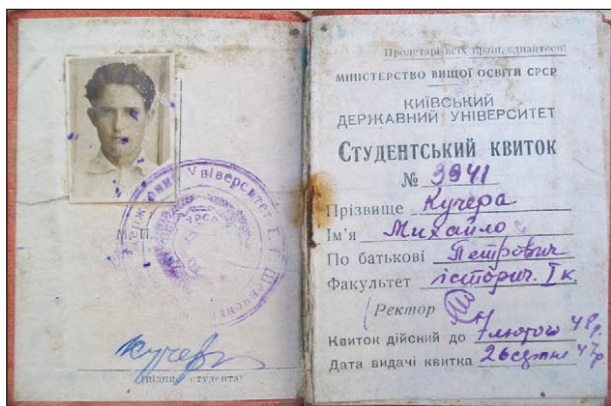 Кучера
(підпис студента)
Пролетарі всіх країн, єднайтеся!
МІНІСТЕРСТВО ВИЩОЇ ОСВІТИ СРСР
КИЇВСЬКИЙ
ДЕРЖАВНИЙ УНІВЕРСИТЕТ
СТУДЕНТСЬКИЙ КВИТОК
№ 3941
Прізвище Кучера
Ім'я Михайло
По батькові Петрович
Факультет історич. І к.
Ректор
Квиток дійсний до 7 лютого 48 р.
Дата видачі квитка 26 47 р